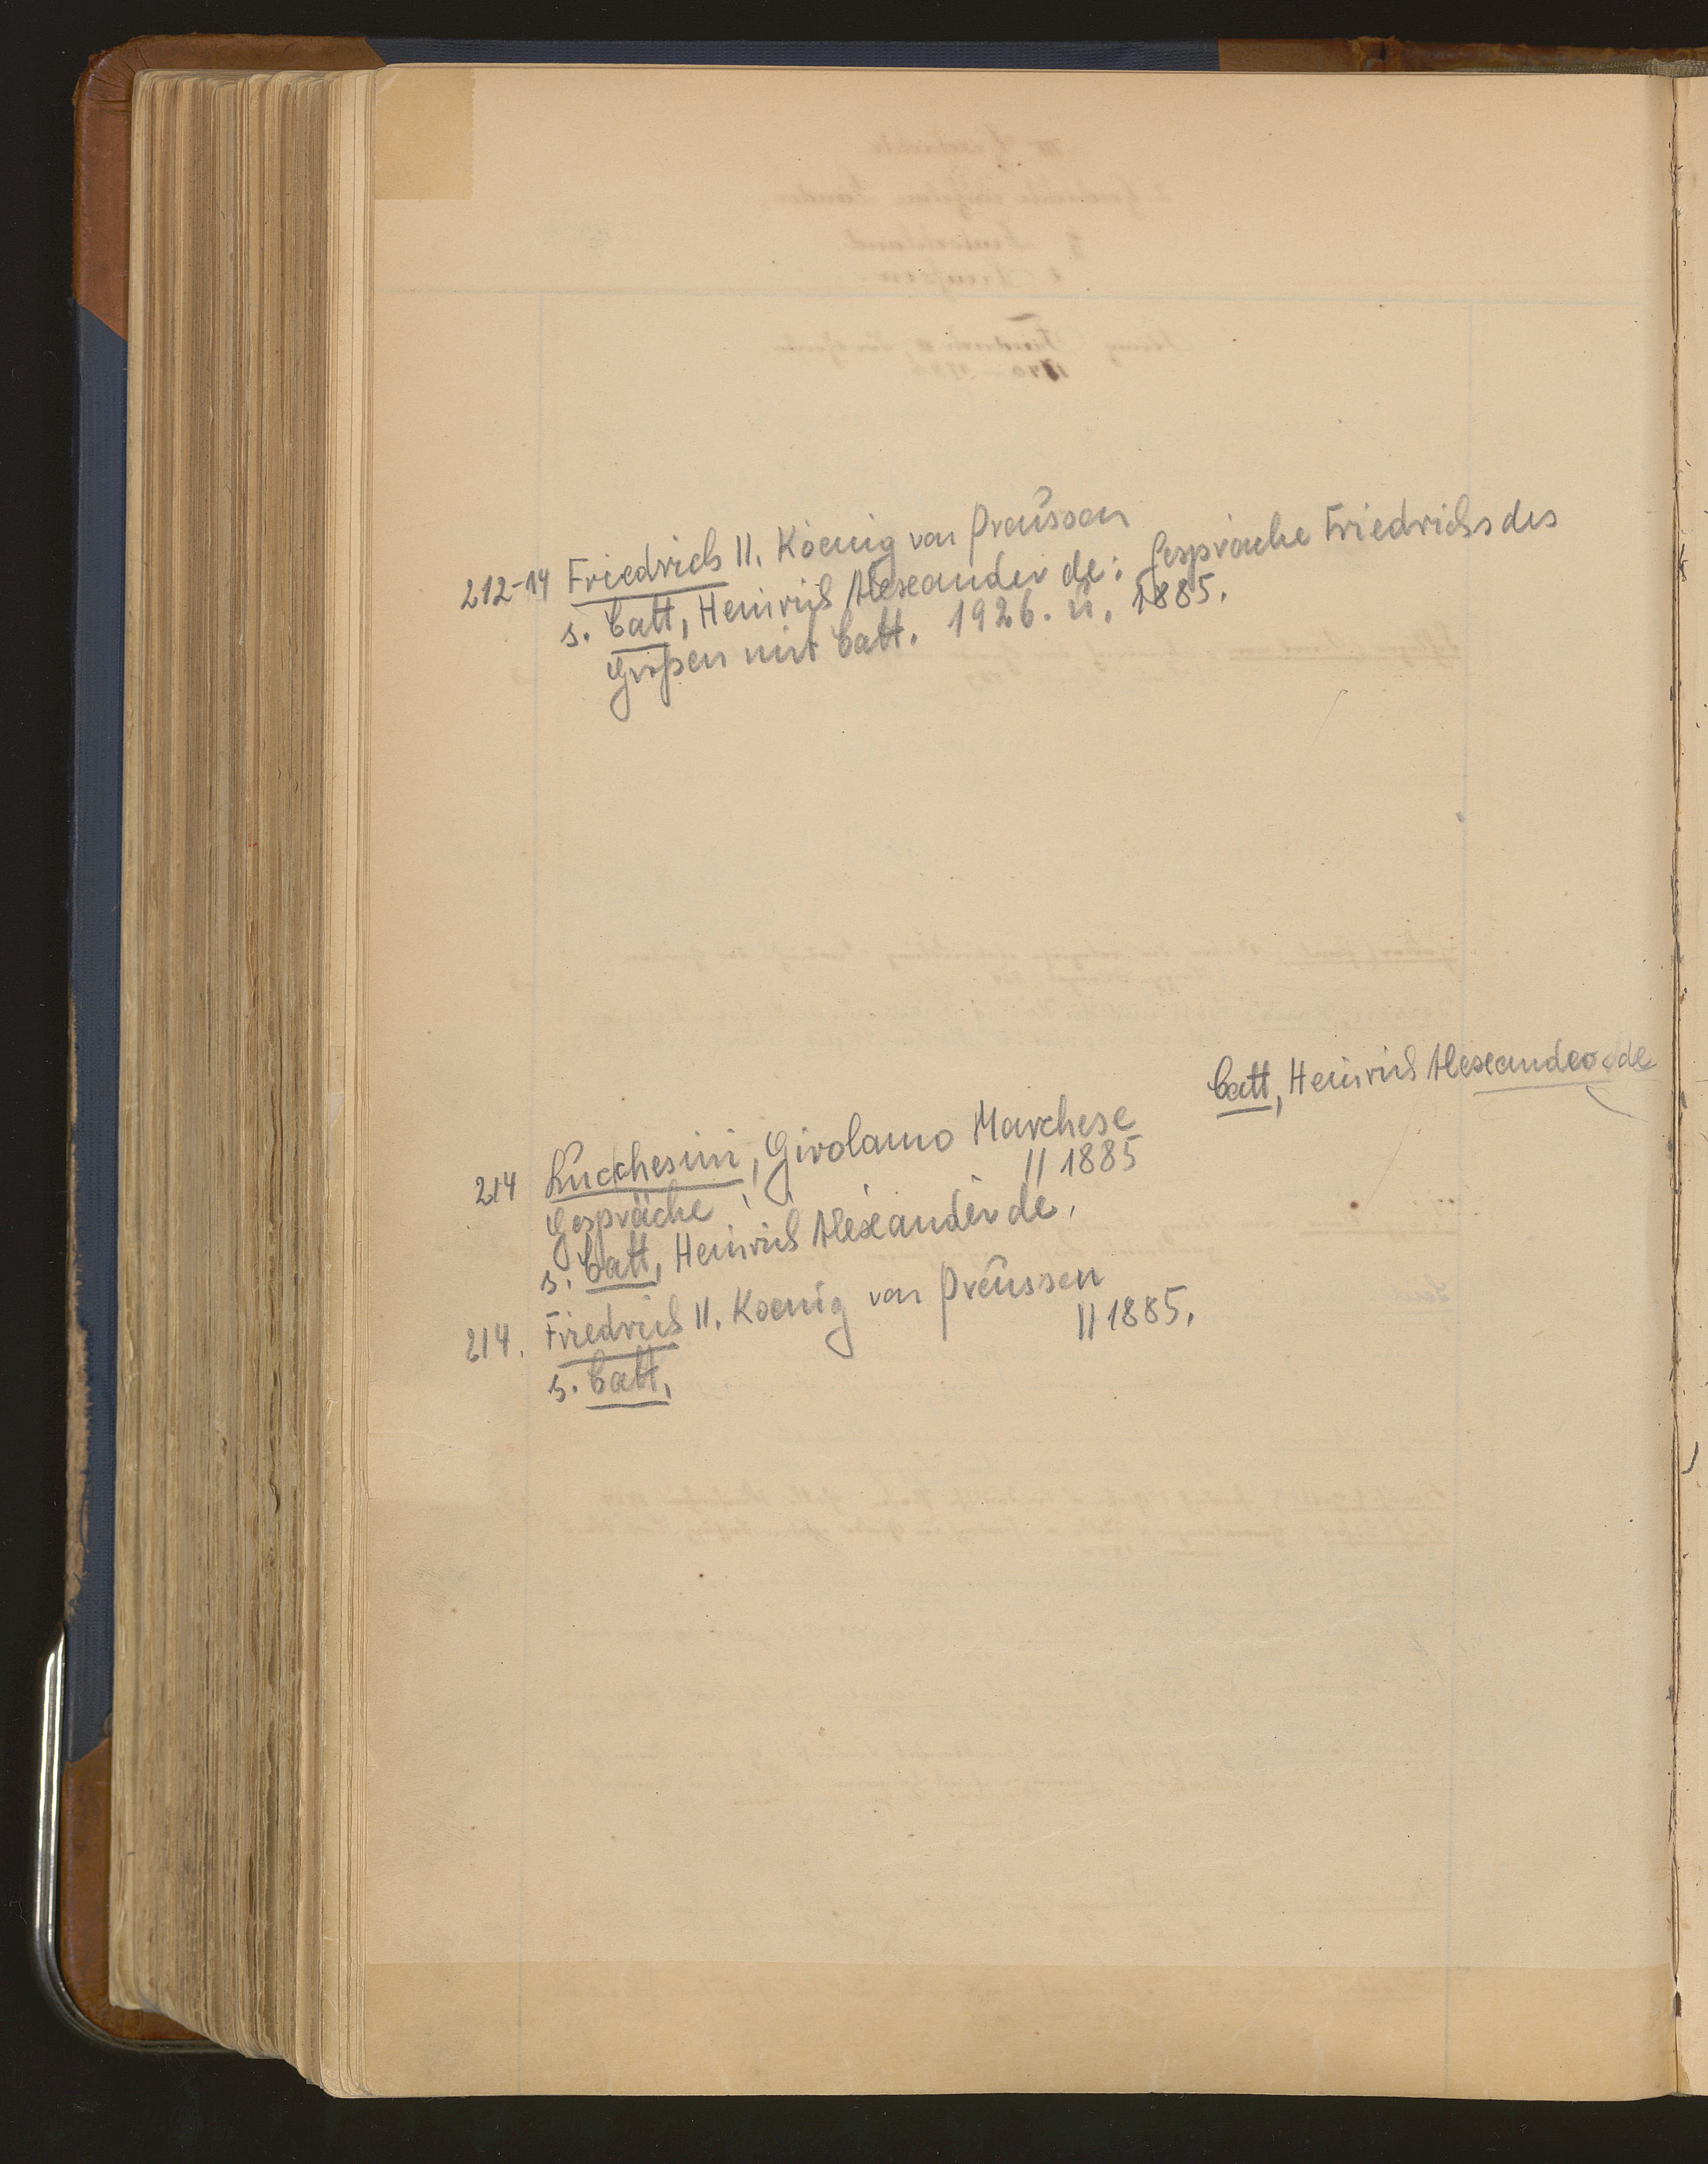 212-14 Friedrich II. Koenig von Preussen
s. Catt, Heinrich Alexander de: Gespräche Friedrichs des
Großen mit Catt. 1926. u. 1885.
Catt, Heinrich Alexander de
214 Lucchesini, Girolamo Marchese
Gespräche // 1885
s. Catt, Heinrich Alexander de.
214. Friedrich II. Koenig von Preussen
s. Catt, // 1885.